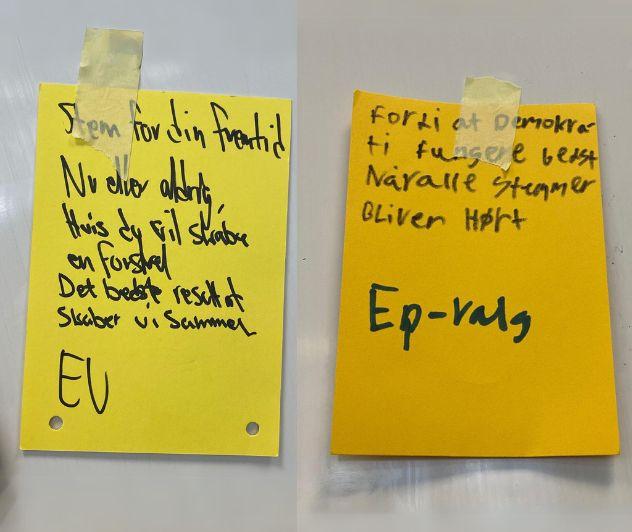 Stem for din fremtid
Nu eller aldrig,
Hvis du vil skabe
en forskel
Det bedste resultat
skaber vi sammen
EU
Fordi at Demokra-
ti fungere bedst
Når alle stemmer
Bliver Hørt
Ep-valg